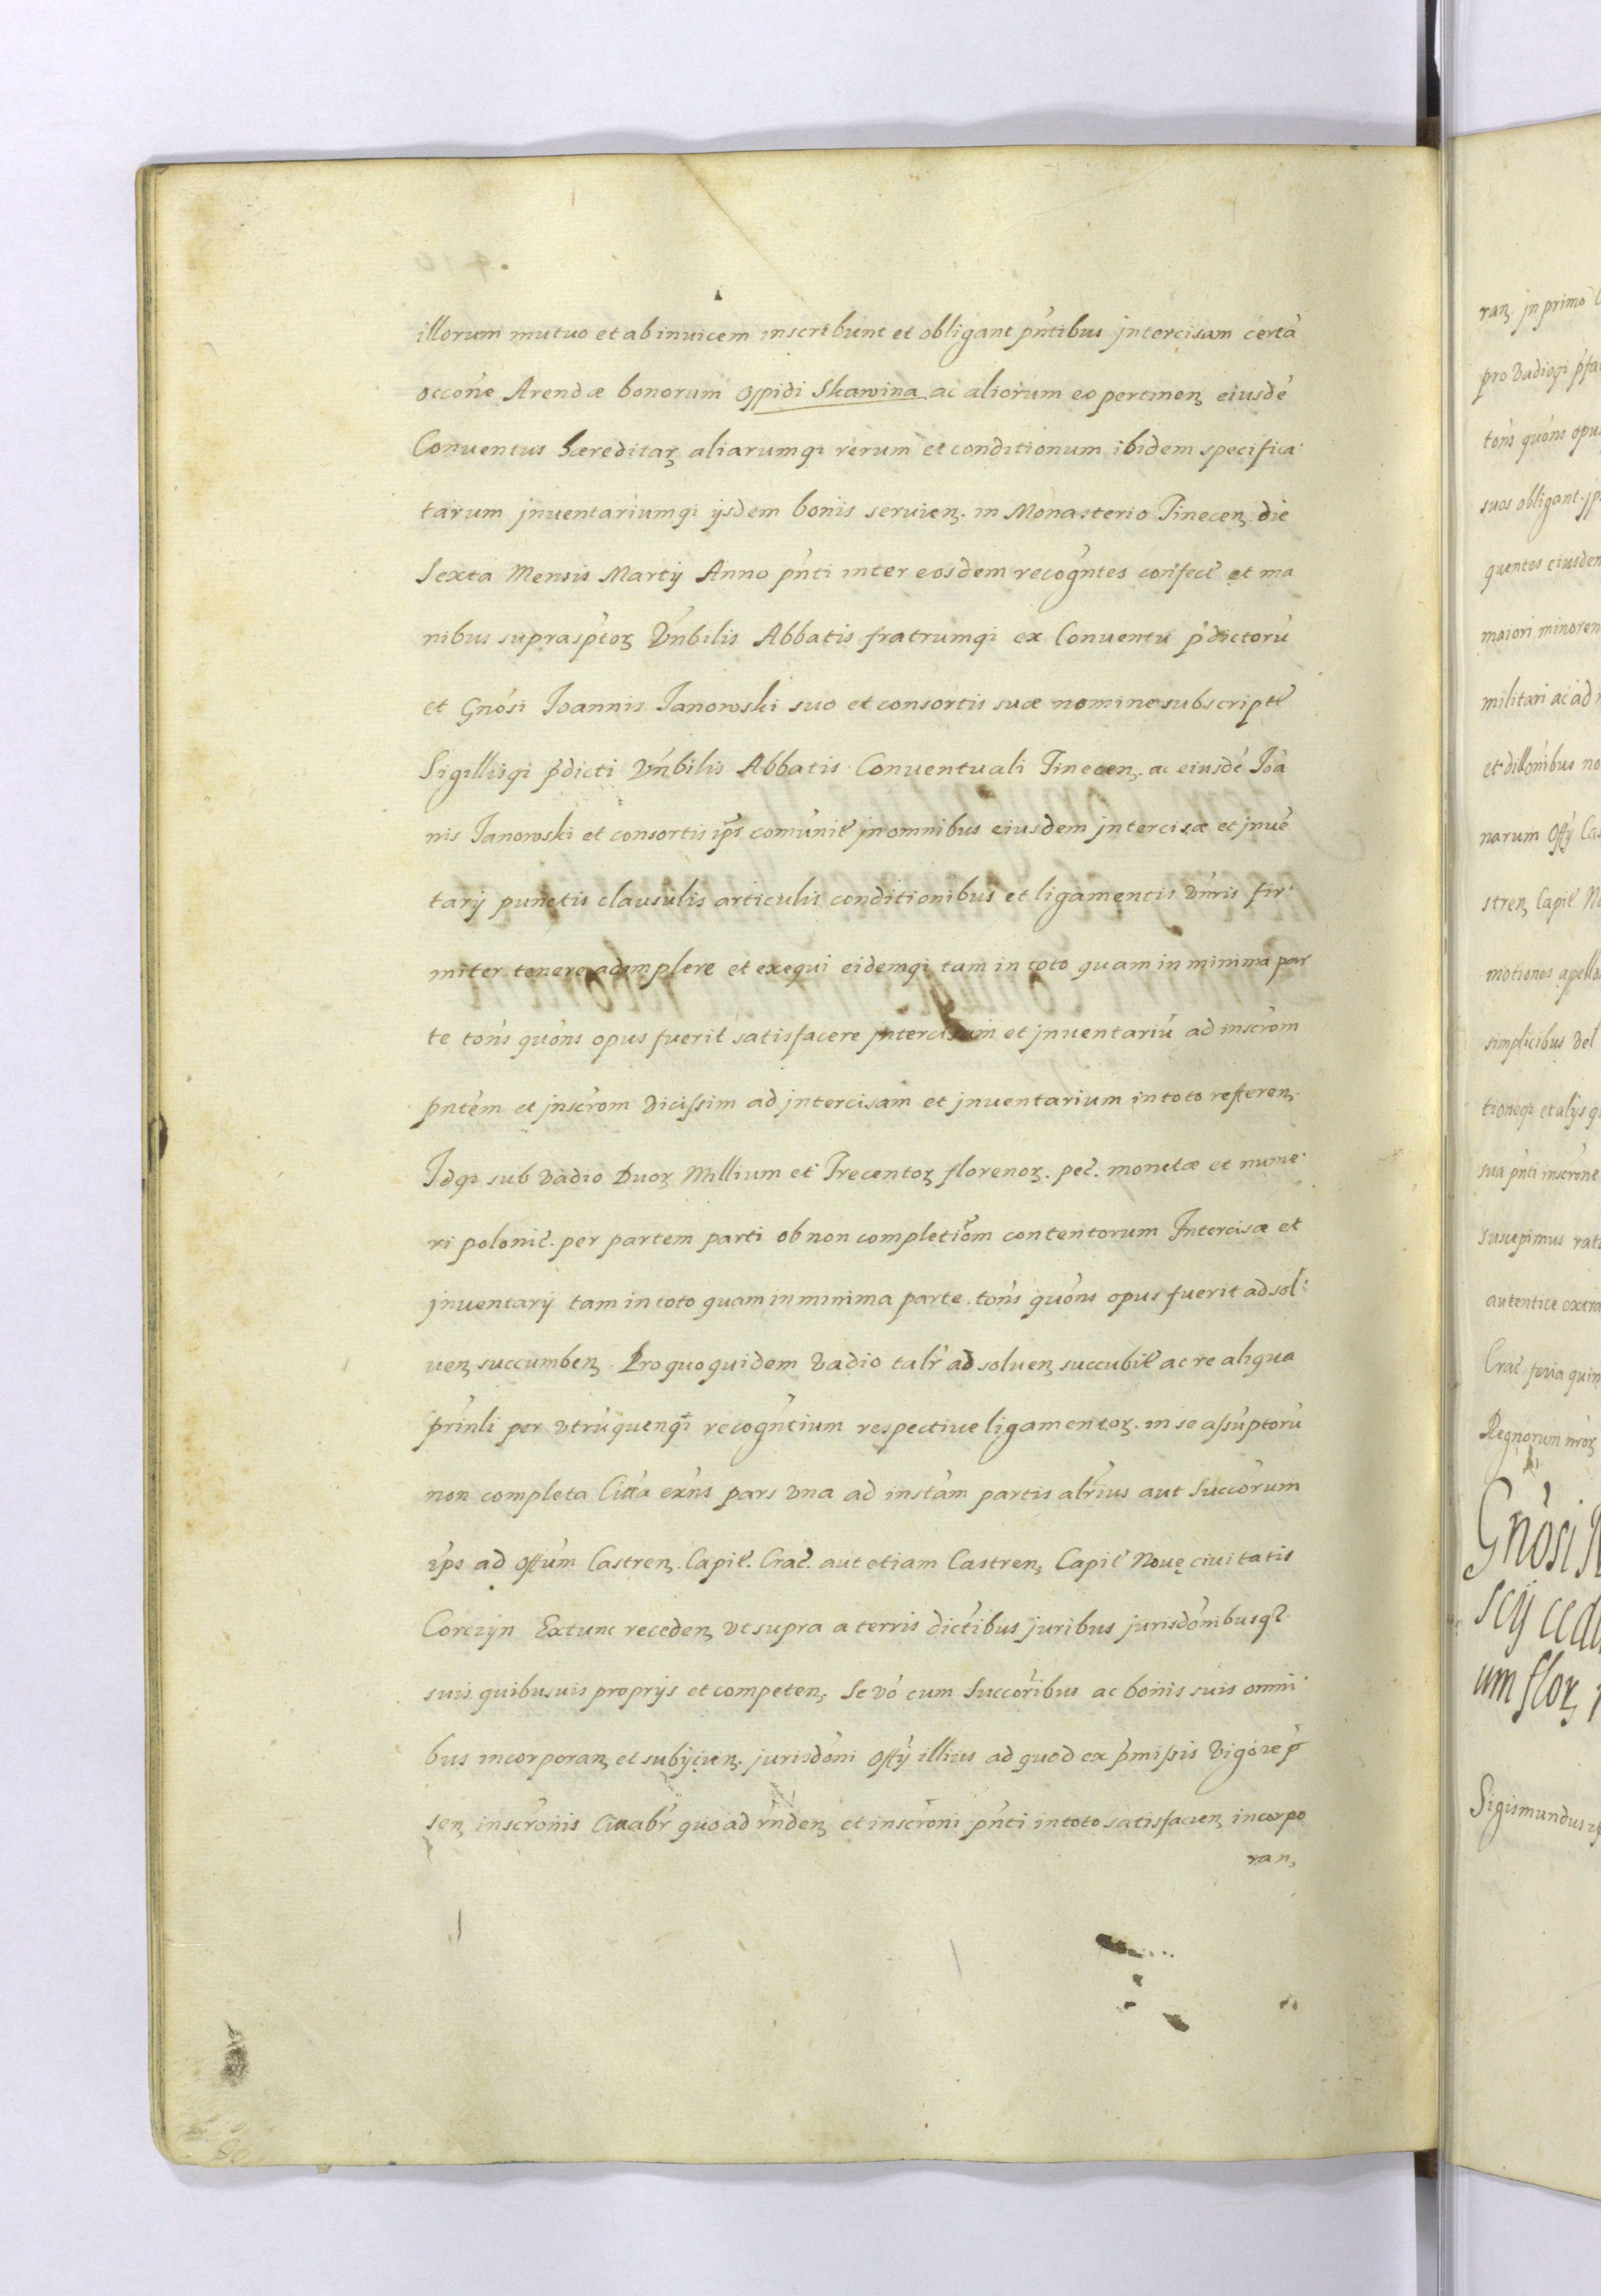 illorum mutuo et ab inuicem inscribunt et obligant pñtibus jntercisam certã
occõne Arendæ bonorum Oppidi Skawina ac aliorum eo pertinenꝫ eiusdẽ
Conuentus hæreditarꝫ aliarumqꝫ rerum et conditionum ibidem specifica
tarum jnuentariumqꝫ ijsdem bonis seruienꝫ. in Monasterio Tinecenꝫ die
Sexta Mensis Martij Anno pñti inter eosdem recogñtes confect̃ et ma
nibus suprasp̃torꝫ Vñbilis Abbatis fratrumqꝫ ex Conuentu p̃dictorũ
et Gñosi Joannis Janowski suo et consortis suæ nomine subscript̃
Sigillisqꝫ p̃dicti Vñbilis Abbatis Conuentuali Tinecenꝫ. ac eiusdẽ Joã
nis Janowski et consortis ip̃s comũnit̃ jn omnibus eiusdem jntercisæ et jnuẽ
tarij punctis clausulis articulis conditionibus et ligamentis vñris fir
miter tenere adimplere et exequi eidemqꝫ tam in toto quam in minima par
te tõns quõns opus fuerit satisfacere jntercisam et jnuentariũ ad inscr̃om
pñtem et jnscr̃om vicissim ad jntercisam et jnuentarium in toto referenꝫ.
Idqꝫ sub vadio Duorꝫ Millium et Trecentorꝫ florenorꝫ. pec̃. monetæ et nume
ri polonic̃. per partem parti ob non completiõm contentorum Intercisæ et
jnuentarij tam in toto quam in minima parte. tõns quõns opus fuerit ad sol
uenꝫ succumbenꝫ. Pro quo quidem vadio talr̃ ad soluenꝫ succubit̃ ac re aliqua
prĩnli per vtrũquenqꝫ recogñtium respectiue ligamentorꝫ. in se assũptorũ
non completa Citt̃a exñs pars vna ad instãm partis alr̃ius aut Succõrum
ip̃s ad Off̃um Castrenꝫ. Capit̃. Crac̃. aut etiam Castrenꝫ Capit̃ Nouę ciuitatis
Corczyn Extunc recedenꝫ vt supra a terris dictĩbus juribus jurisdõnibusqꝫ
suis quibusuis proprijs et competenꝫ. Se võ cum Succõribus ac bonis suis omni
bus incorporanꝫ et subijcienꝫ. jurisdõni Off̃ij illius ad quod ex p̃missis vigore p̃
senꝫ inscrõnis Cittabr̃ quoad rñdenꝫ et inscrõni pñti in toto satisfacienꝫ incorpo
ranꝫ
ranꝫ. jn primo
pro vadioqꝫ
tõns quõns
suos obligant.
quentes
maiori
militari ac ad
narum Off̃ij
strenꝫ Capit̃
motiones
simplicibus vel
tioneqꝫ et alijs
sua pñti inscrõne
suscepimus
autentice
Crac̃ feria
Regnorum nr̃orꝫ
Gñosi
um florꝫ
Sigismundus